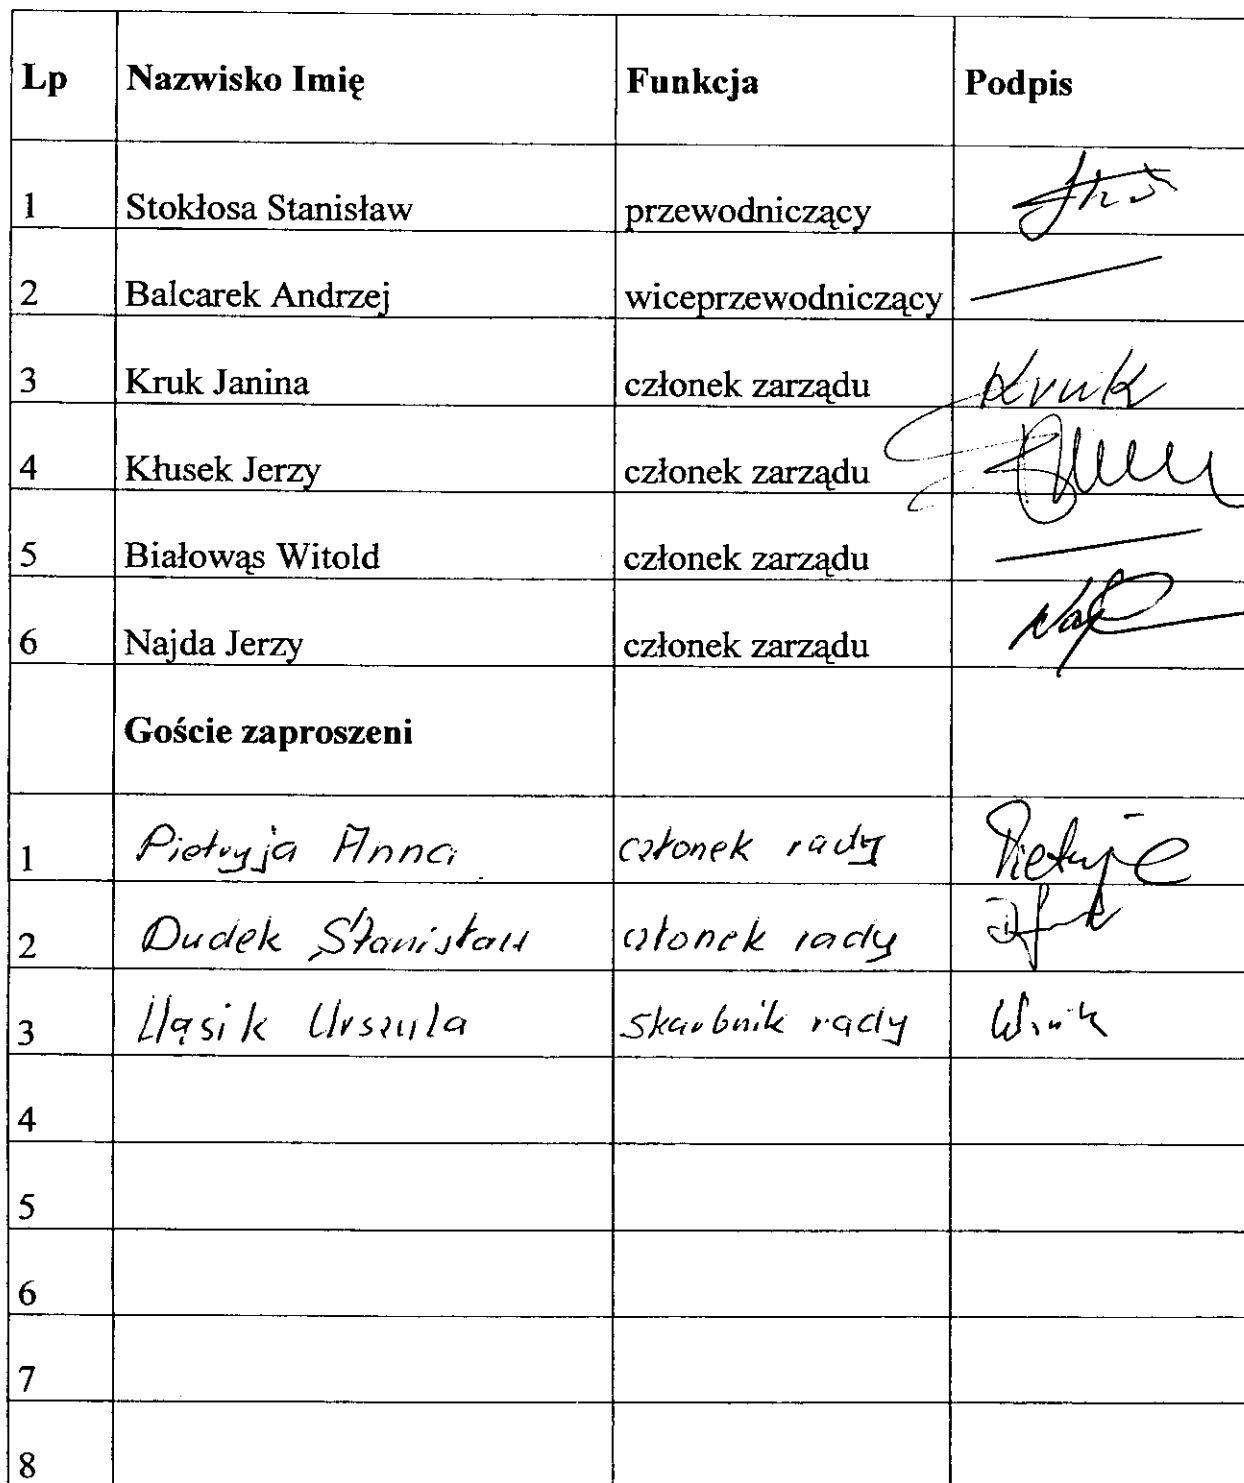 Lp Nazwisko Imię Funkcja Podpis
1 Stokłosa Stanisław przewodniczący
2 Balcarek Andrzej wiceprzewodniczący
3 Kruk Janina członek zarządu Kruk
4 Kłusek Jerzy członek zarządu
5 Białowąs Witold członek zarządu
6 Najda Jerzy członek zarządu
Goście zaproszeni
1 Pietryja Anna członek rady Pietryja
2 Dudek Stanisław członek rady
3 Wąsik Urszula skarbnik rady
4
5
6
7
8